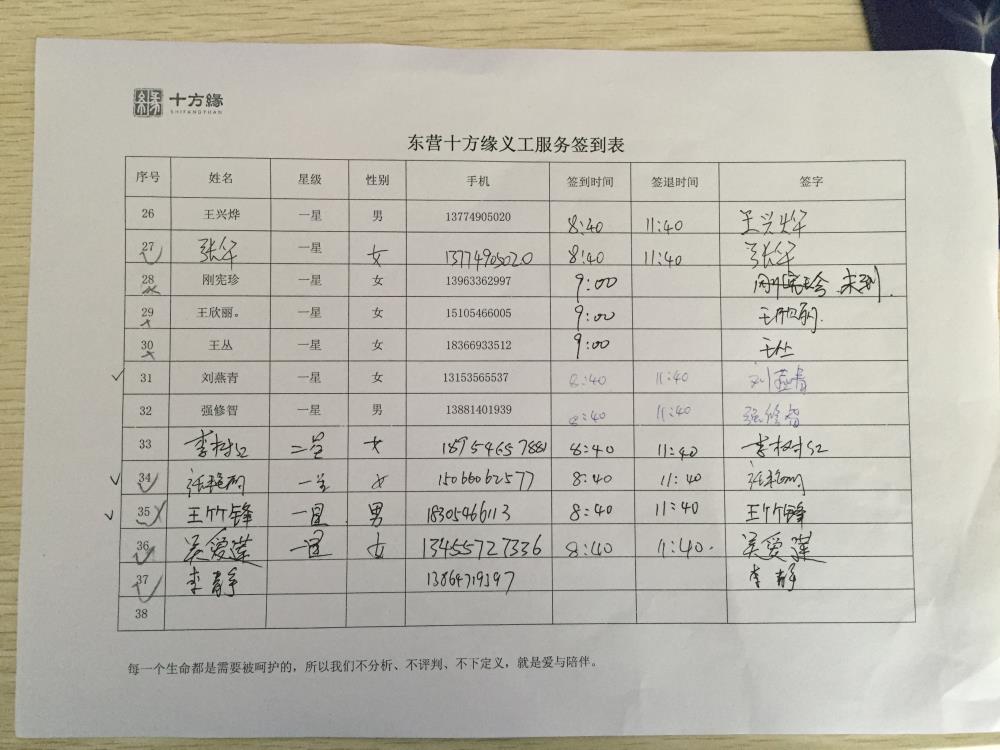 十方缘
SHIFANGYUAN
东营十方缘义工服务签到表
序号 姓名 星级 性别 手机 签到时间 签退时间 签字
26 王兴烨 一星 男 13774905020 8:40 11:40 王兴烨
27 张华 一星 女 13774905020 8:40 11:40 张华
28 刚宪珍 一星 女 13963362997 9:00 刚宪珍 未到.
29 王欣丽。 一星 女 15105466005 9:00 王欣丽
30 王丛 一星 女 18366933512 9:00 王丛
31 刘燕青 一星 女 13153565537 8:40 11:40 刘燕青
32 强修智 一星 男 13881401939 8:40 11:40 强修智
33 李树红 二星 女 18954657881 8:40 11:40 李树红
34 一星 女 15066062577 8:40 11:40
35 王竹锋 一星 男 18305466113 8:40 11:40 王竹锋
36 吴爱莲 一星 女 13455727336 8:40 11:40. 吴爱莲
37 李静 13864719397 李静
38
每一个生命都是需要被呵护的，所以我们不分析、不评判、不下定义，就是爱与陪伴。